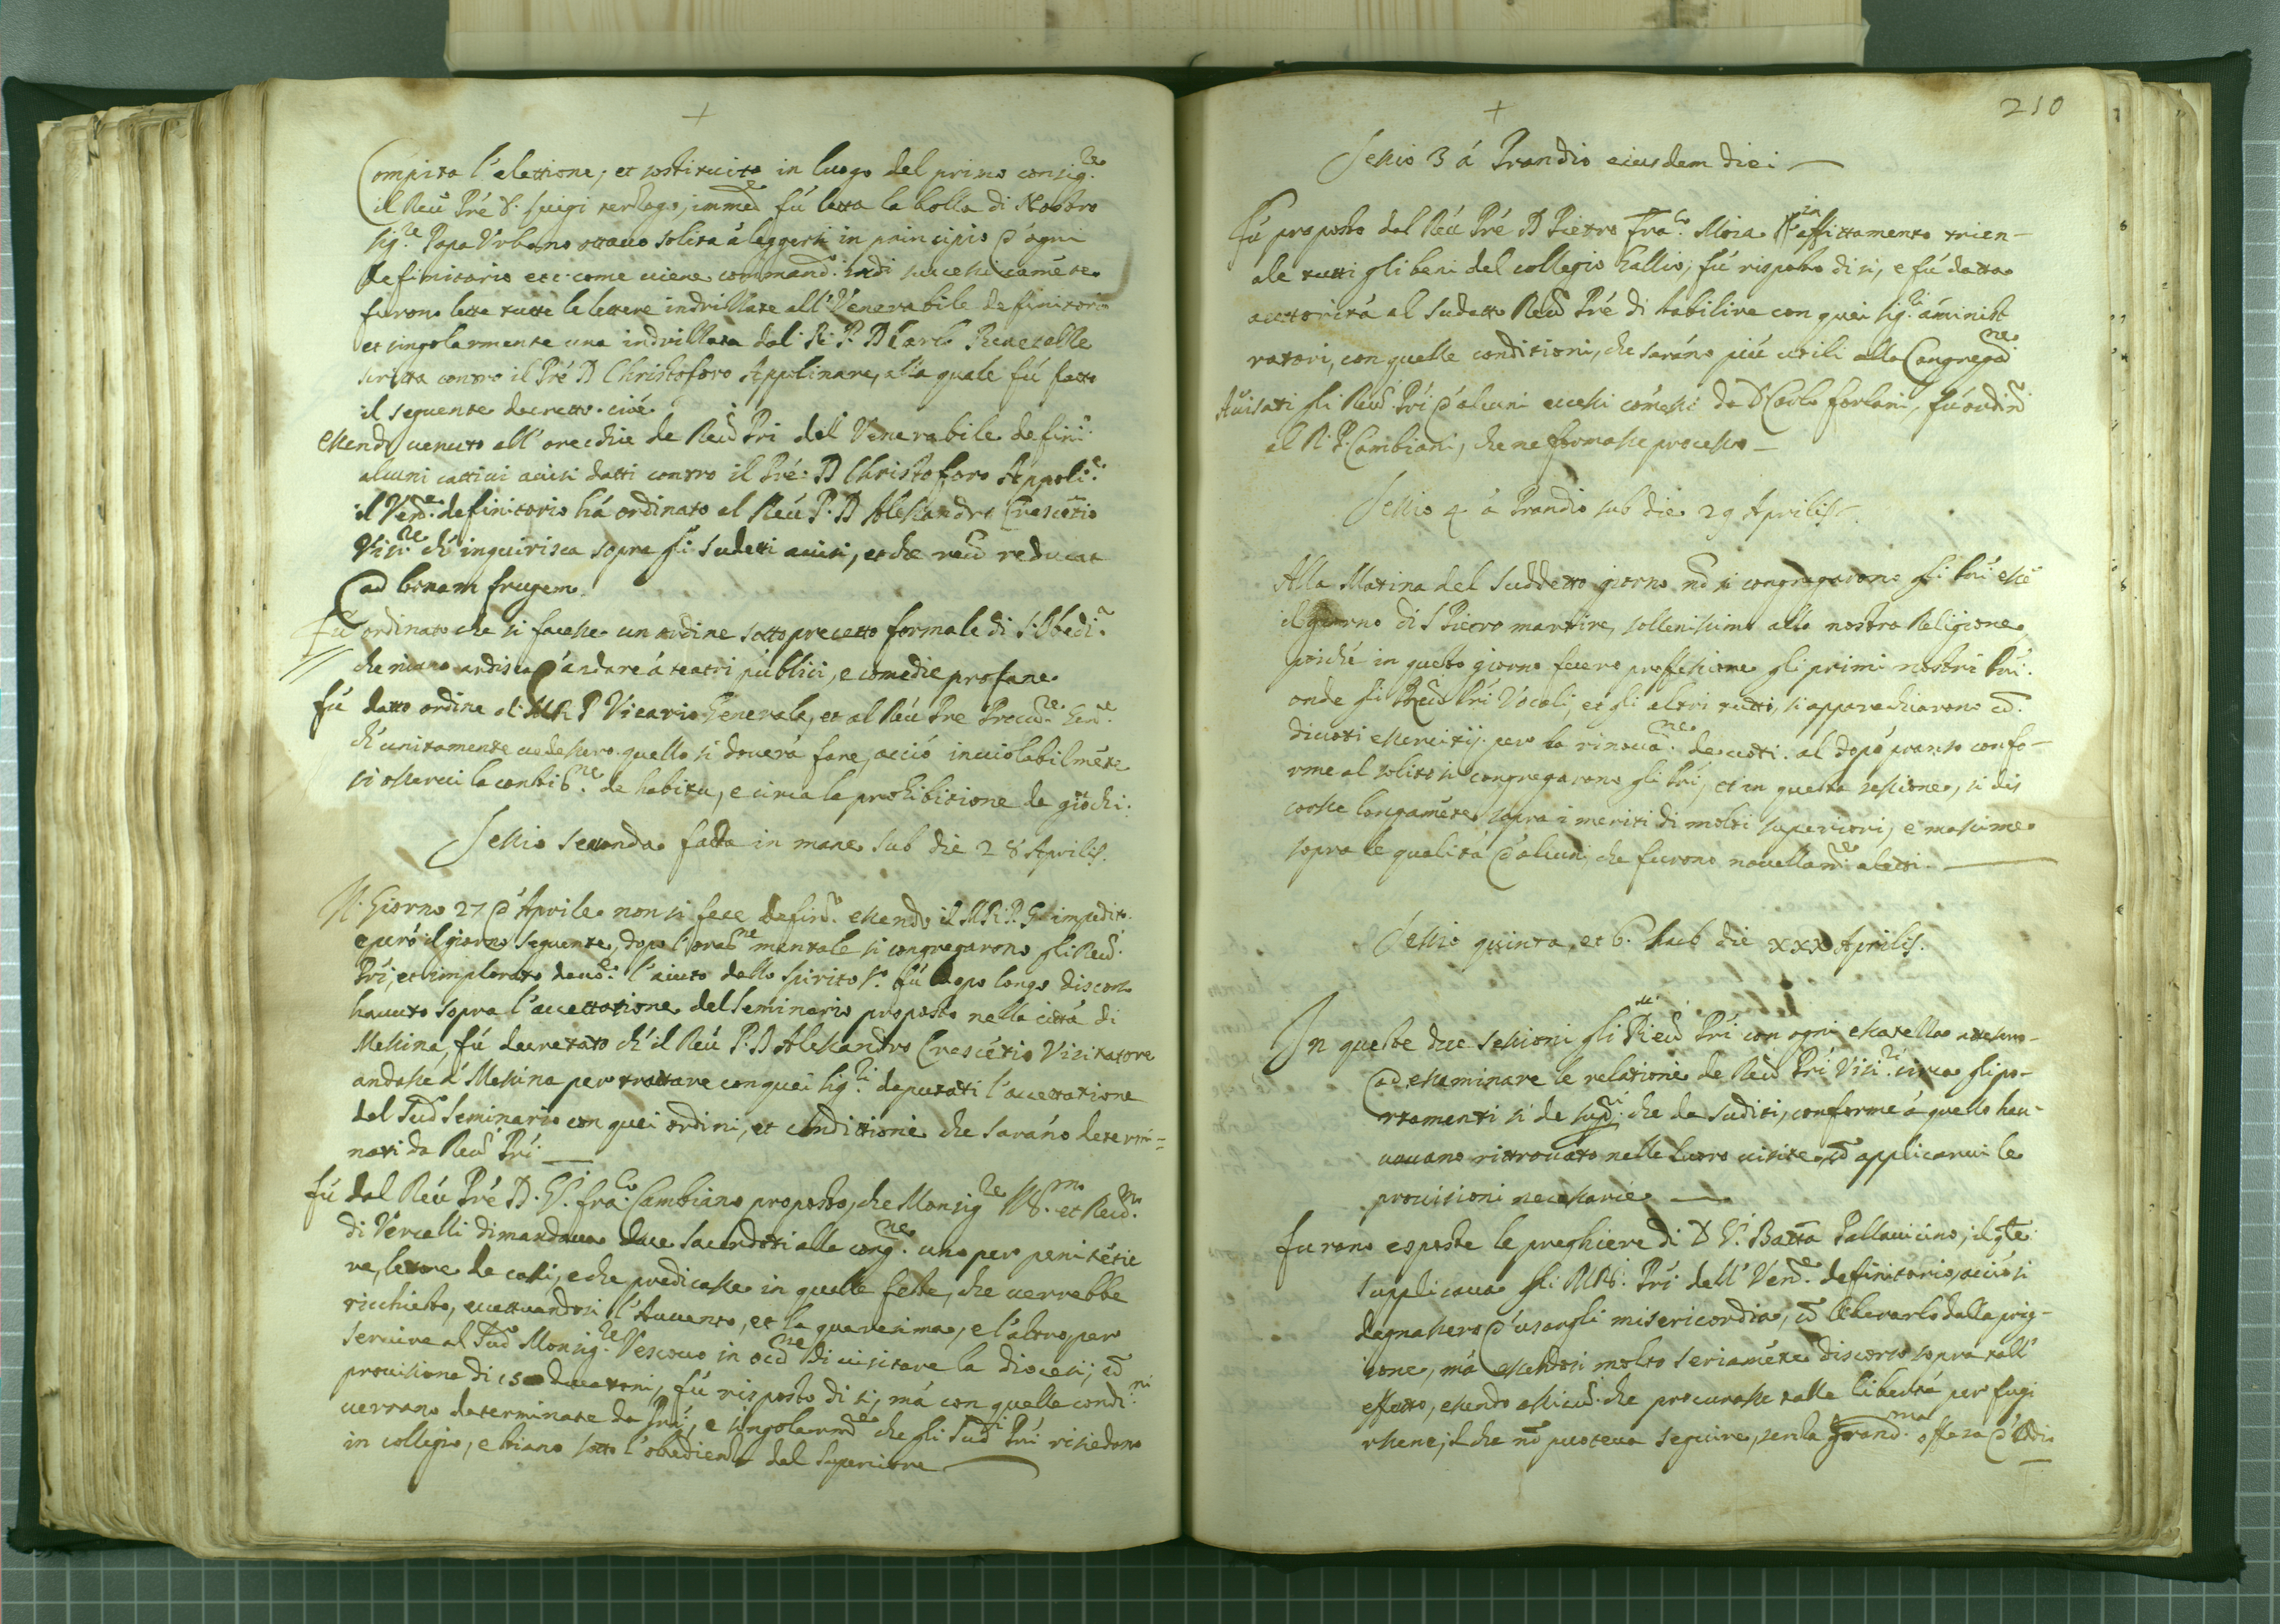 +
Compita l'elettione, et sostituito in luogo del primo consig.re
il Reu. Pré D. Luigi Terzago, immed.e fú letta la bolla di Nostro
Sig.re Papa Vrbano ottauo solita á leggersi in principio d'ogni
definitorio etc. come uiene command.o indi successiuaméte
furono lette tutte le lettere indrizzate all'Venerabile definitorio
et singolarmente una indrizzata dal R. P. D Carlo
scritta contro il Pré D Christoforo Appolinare, alla quale fú fatto
il seguente decretto. cioé
Essendo uenuto all'orecchie de Reu.di Pri del Venerabile defini.
alcuni cattiui auisi datti contro il Pré D Christoforo Appoli.e
il Ven.e definitorio há ordinato al Reu. P. D Alessandro Crescétio
Visi.re ch'inquirisca sopra gli sudetti auisi, et che reum reducat
ad bonam frugem.
Fú ordinato che si facesse un ordine sotto precetto formale di S. Obedi.a
che niuno ardisca d'andare á teatri publici, e comedie profane
fú datto ordine al M R P Vicario Generale, et al Reu. Pre Procu.re Gen.e
ch'unitamente uedessero quello si douerá fare, acció inuiolabilméte
si osserui la constit.ne de habitu, e circa la prohibitione de giochi.
Sessio seconda fatta in mane sub die 28 Aprilis.
Il Giorno 27 d'Aprile non si fece defin.o essendo il M.R.P. G. impedito.
e peró il giorno seguente, dopo l'orat.ne mentale si congregarono gli Reu.
Pri, et implorato deuo.e l'aiuto dello Spirito S.o fú dopo longo discorso
hauuto sopra l'accettatione del Seminario proposto nella cittá di
Messina, fú decretato ch'il Reu P. D Alessandro Crescétio Visitatore
andasse á Messina per trattare con quei Sig.ri deputati l'accettatione
del Sud.o Seminario con quei ordini, et conditione che saráno determi-
nati da Reu. Pri.
fú dal Reu Pré D. Gio. Fra.co Cambiano proposto, che Monsig.re Ill.mo et Reu.mo
di Vercelli dimandaua due Sacerdoti alla cong.ne uno per penitétie
re, lettore de casi, e che predicasse in quelle feste, che uerrebbe
ricchiesto, eccettuandosi l'Auuento, et la quaresima, e l'altro per
seruire al Sud.o Monsig.re Vescouo in occ.ne di uisitare la diocesi, có
prouisione di 150 ducatoni, fú risposto di si, má con quelle condi.ni
uerrano determinate da Pri, e singolarm.e che gli Sud.i Pri risiedano
in collegio, e stiano sotto l'obedienza del Superiore
+
210
Sessio 3 á Prandio eiusdem diei
Fú proposto dal Reu Pré D Pietro Fra.co Moia in affittamento trien-
ale tutti gli beni del collegio Gallio, fú risposto di si, e fú datta
auttoritá al sudetto Reu Pré di stabilire con quei Sig.ri áminist
ratori, con quelle conditioni, che saráno piú utili alla Congrega.ne
Auisati gli Reu. Pri d'alcuni eccessi cómessi da D Carlo Forlani, fú ordin.o
al R. P. Cambiani, che ne formasse processo
Sessio 4 á Prandio sub die 29 Aprilis.
Alla Matina del suddetto giorno nó si congregarono gli Pri essé
il giorno di S Pietro martire, sollenissimo alla nostra Religione
poiché in questo giorno fecero professione gli primi nostri Pri.
onde gli Reu.di Pri Vocali, et gli altri tutti, si apparechiarono có.
diuoti essercitij per la rinoua.ne de uoti. al dopó pranso confo-
rme al solito si congregarono gli Pri, et in questa sessione, si dis
corse longaméte sopra i meriti di molti superiori, e massime
sopra le qualitá d'alcuni, che furono nouellam.e eletti.
Sessio quinta, et 6. sub die xxx Aprilis.
In queste due sessioni gli Reu Pri con ogni esatezza attesero
ad essaminare le relationi de Reu Pri Visi.ri circa gli po-
rtamenti si de sup.ri che de suditi, conforme á quello hau-
uouano ritrouato nelle loro uisite, có applicarui le
prouisioni necessarie
furono esposte le preghiere di D G. Batta Pallauicino, il qle
supplicaua gli M RR. Pri dell' Ven.e definitorio, acció si
degnassero d'usargli misericordia, có liberarlo dalla prig-
ione, má essendosi molto seriaméte discorso sopra tall'
effetto, essendo assicu. che procurasse talle libertá per fugi
rsene, il che nó poteua seguire, senza grand.ma offesa d'Iddio